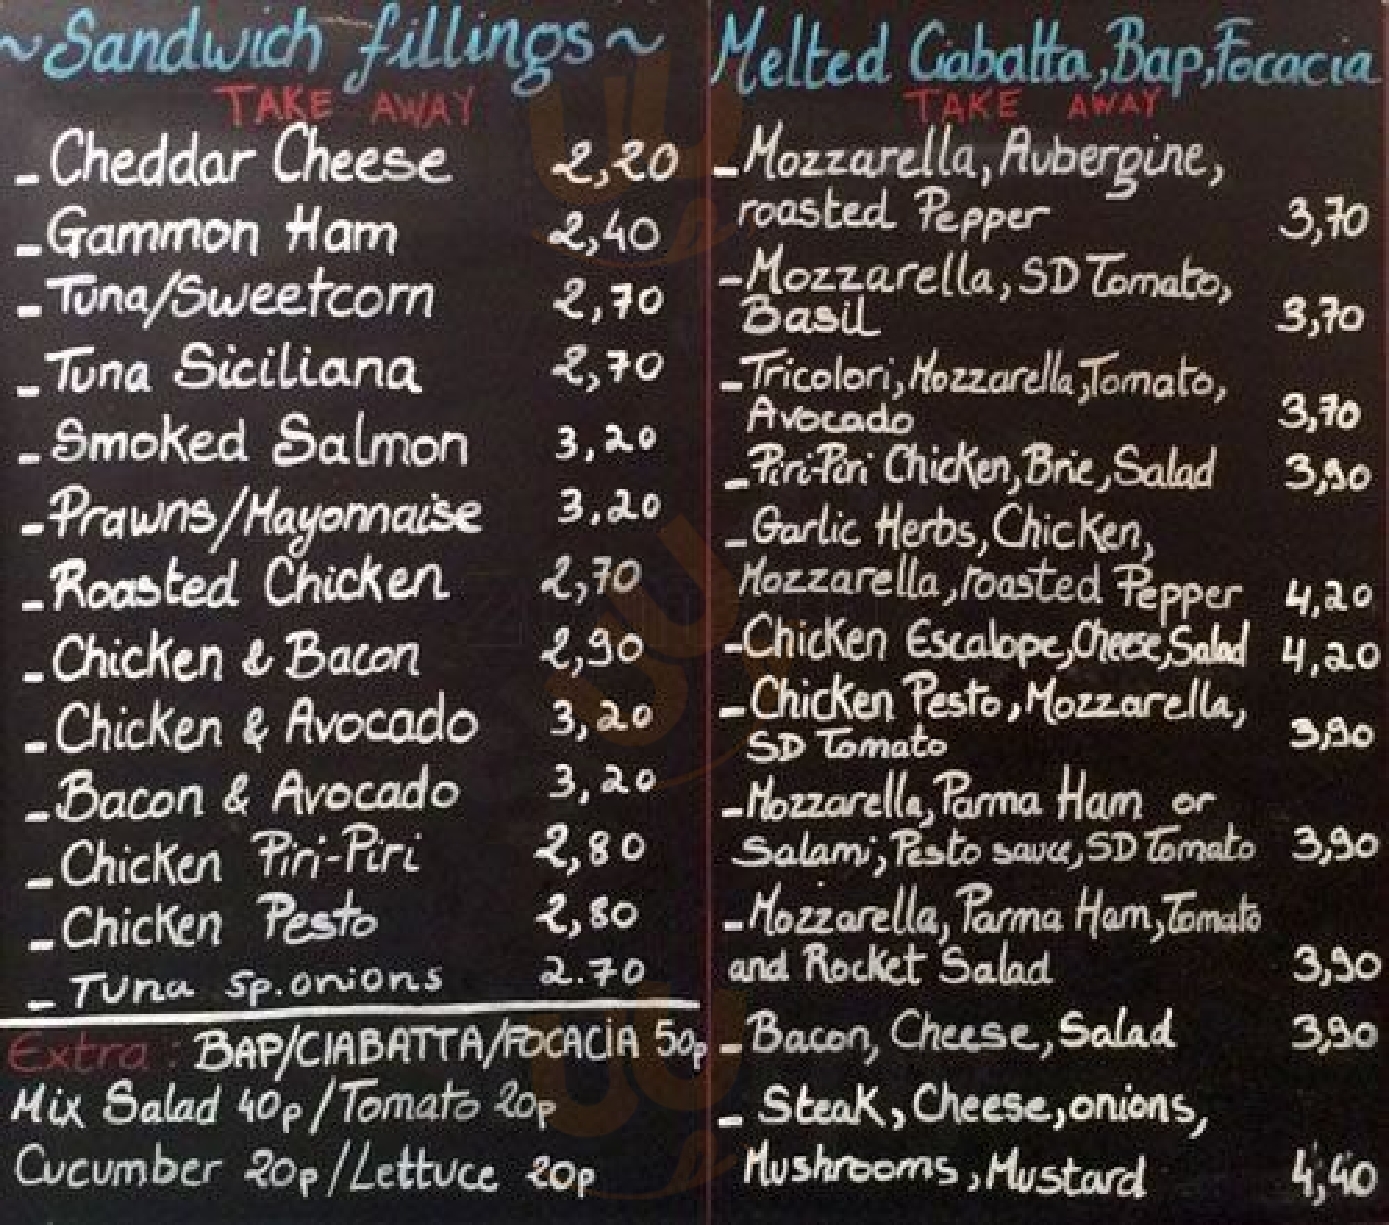 ~Sandwich fillings~
TAKE AWAY
-Cheddar Cheese 2,20
-Gammon Ham 2,40
-Tuna/Sweetcorn 2,70
-Tuna Siciliana 2,70
-Smoked Salmon 3,20
-Prawns/Mayonnaise 3,20
-Roasted Chicken 2,70
-Chicken & Bacon 2,90
-Chicken & Avocado 3,20
-Bacon & Avocado 3,20
-Chicken Piri-Piri 2,80
-Chicken Pesto 2,80
-Tuna Sp.onions 2.70
Extra: BAP/CIABATTA/FOCACIA 50p
Mix Salad 40p/Tomato 20p
Cucumber 20p/Lettuce 20p
Melted Ciabatta,Bap,Focacia
TAKE AWAY
-Mozzarella, Aubergine,
roasted Pepper 3,70
-Mozzarella, SD Tomato,
Basil 3,70
-Tricolori, Mozzarella, Tomato,
Avocado 3,70
-Piri-Piri Chicken, Brie, Salad 3,90
-Garlic Herbs, Chicken,
Mozzarella, roasted Pepper 4,20
-Chicken Escalope, Cheese, Salad 4,20
-Chicken Pesto, Mozzarella,
SD Tomato 3,90
-Mozzarella, Parma Ham or
Salami, Pesto sauce, SD Tomato 3,90
-Mozzarella, Parma Ham, Tomato
and Rocket Salad 3,90
-Bacon, Cheese, Salad 3,90
- Steak, Cheese, onions,
Mushrooms, Mustard 4,40